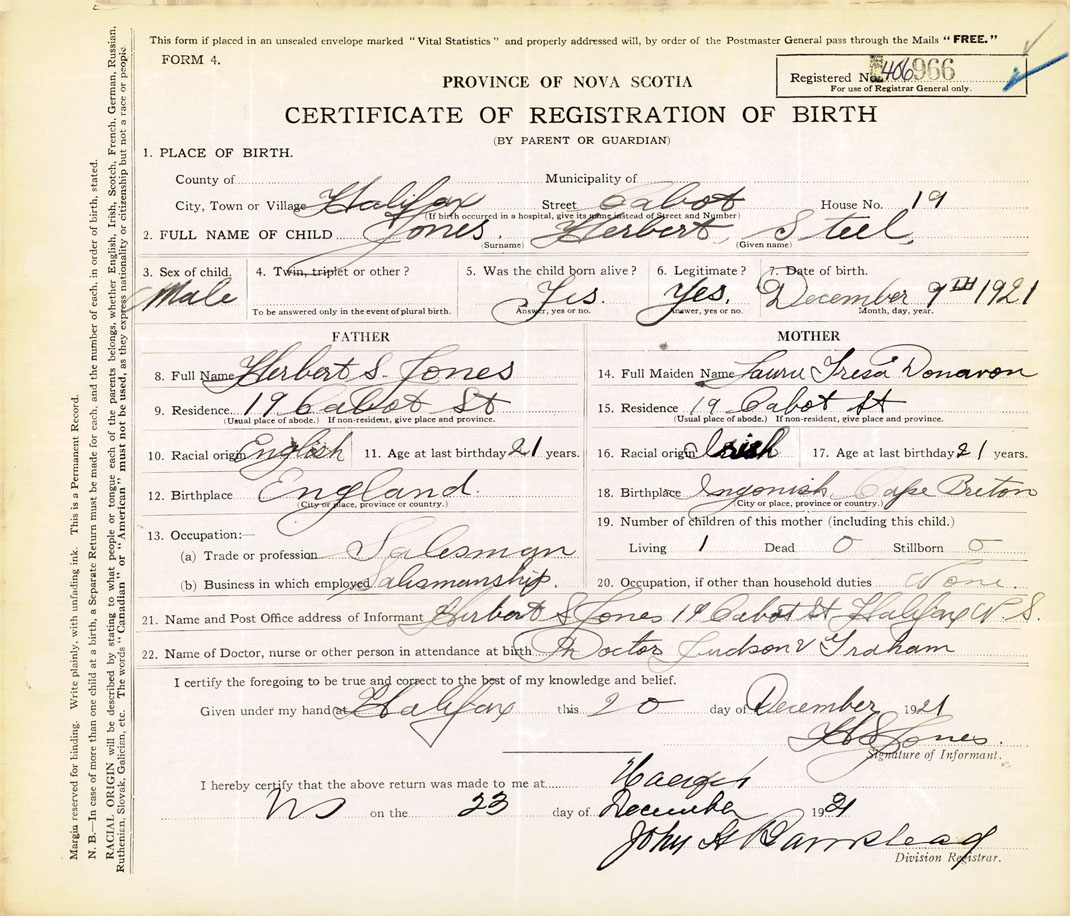 This form if placed in an unsealed envelope marked "Vital Statistics" and properly addressed will, by order of the Postmaster General pass through the Mails "FREE."
FORM 4.
Registered No. 406966
For use of Registrar General only.
PROVINCE OF NOVA SCOTIA
CERTIFICATE OF REGISTRATION OF BIRTH
(BY PARENT OR GUARDIAN)
1. PLACE OF BIRTH.
County of Municipality of
City, Town or Village Halifax Street Cabot House No. 19
(If birth occurred in a hospital, give its name instead of Street and Number)
2. FULL NAME OF CHILD Jones. Herbert Steel
(Surname) (Given name)
3. Sex of child. 4. Twin, triplet or other? 5. Was the child born alive? 6. Legitimate? 7. Date of birth.
Male Yes. Yes. December 9TH 1921
To be answered only in the event of plural birth. Answer, yes or no. Answer, yes or no. Month, day, year.
FATHER
8. Full Name Herbert S. Jones
9. Residence 19 Cabot St
(Usual place of abode.) If non-resident, give place and province.
10. Racial origin English 11. Age at last birthday 21 years.
12. Birthplace England.
(City or place, province or country.)
13. Occupation:—
(a) Trade or profession Salesman
(b) Business in which employed Salesmanship.
MOTHER
14. Full Maiden Name Tresa Donavon
15. Residence 19 Cabot St
(Usual place of abode.) If non-resident, give place and province.
16. Racial origin Irish 17. Age at last birthday 21 years.
18. Birthplace Ingonish Cape Breton
(City or place, province or country.)
19. Number of children of this mother (including this child.)
Living 1 Dead 0 Stillborn 0
20. Occupation, if other than household duties None.
21. Name and Post Office address of Informant Herbert S Jones 19 Cabot St Halifax N.S.
22. Name of Doctor, nurse or other person in attendance at birth Doctor Judson V Graham
I certify the foregoing to be true and correct to the best of my knowledge and belief.
Given under my hand at Halifax this 20 day of December 1921
H S Jones.
Signature of Informant.
I hereby certify that the above return was made to me at Halifax
NS on the 23 day of December 1921
John H Barnstead
Division Registrar.
Margin reserved for binding. Write plainly, with unfading ink. This is a Permanent Record.
N. B.—In case of more than one child at a birth, a Separate Return must be made for each, and the number of each, in order of birth, stated.
RACIAL ORIGIN will be described by stating to what people or tongue each of the parents belongs, whether English, Irish, Scotch, French, German, Russian,
Ruthenian, Slovak, Galician, etc. The words "Canadian" or "American" must not be used, as they express nationality or citizenship but not a race or people